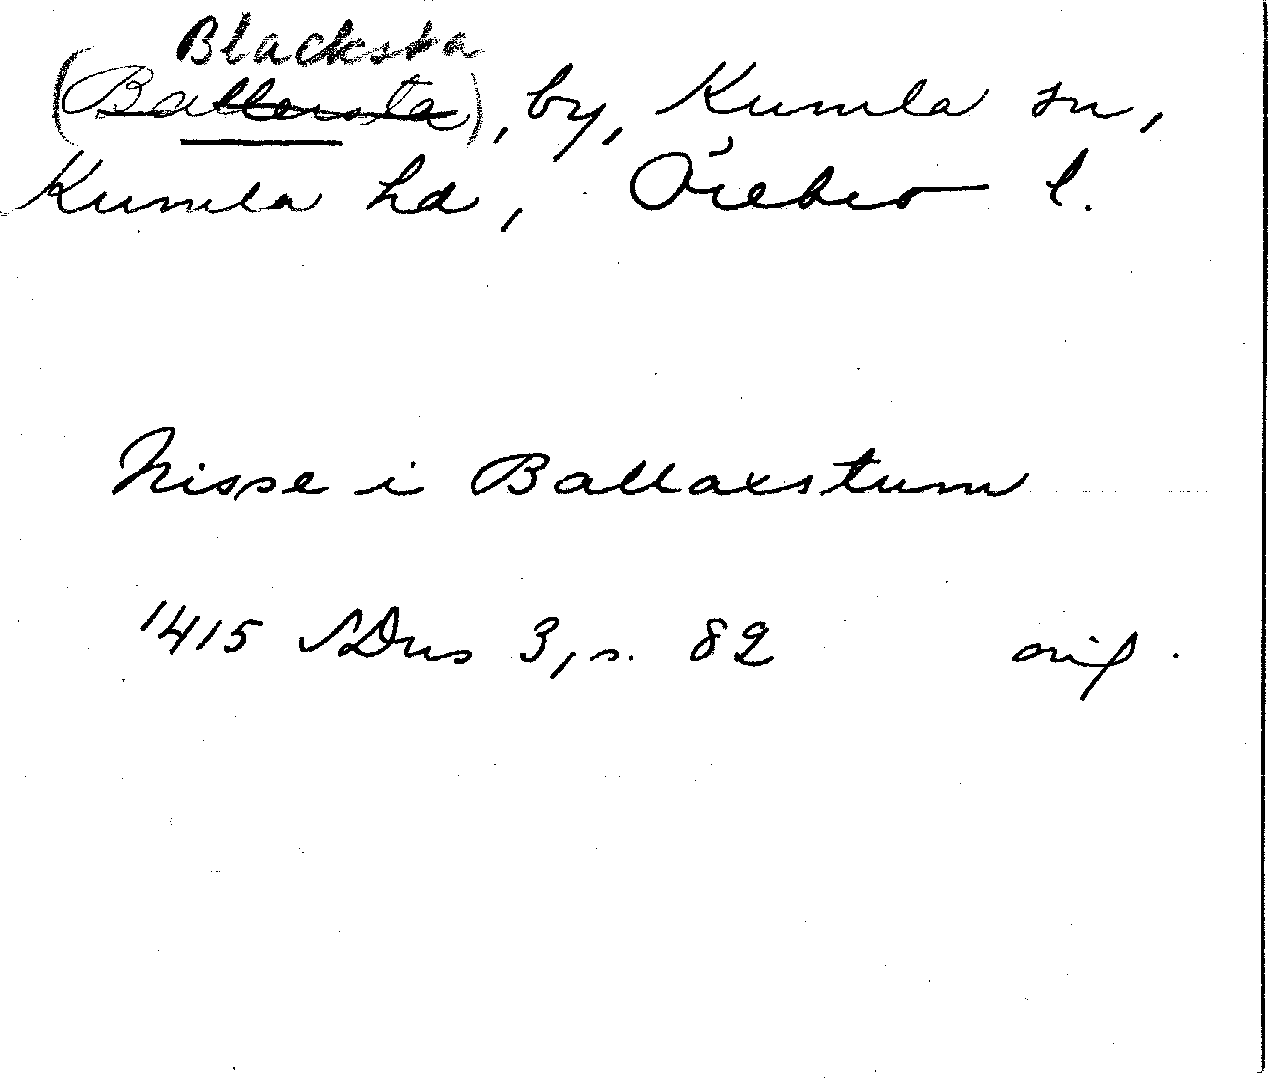 Blacksta
(Ballersta), by, Kumla sn,
Kumla hd, Örebro l.
Nisse i Ballaxstum
1415 SDns 3, s. 82 orig.